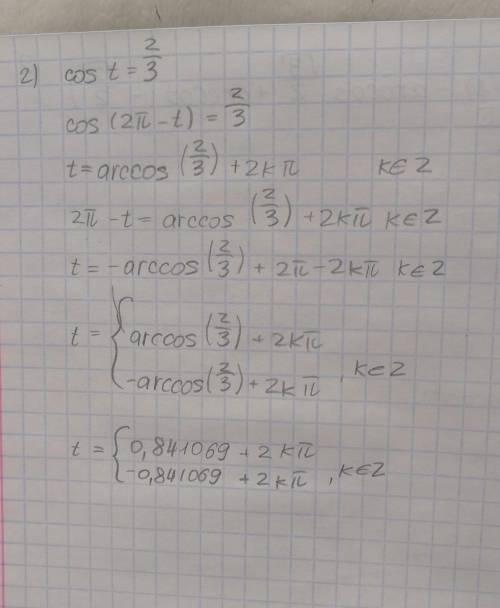 2) cos t = 2/3
cos (2π - t) = 2/3
t = arccos (2/3) + 2kπ k∈Z
2π - t = arccos (2/3) + 2kπ k∈Z
t = -arccos (2/3) + 2π - 2kπ k∈Z
t = { arccos (2/3) + 2kπ
-arccos (2/3) + 2kπ , k∈Z
t = { 0,841069 + 2kπ
-0,841069 + 2kπ , k∈Z